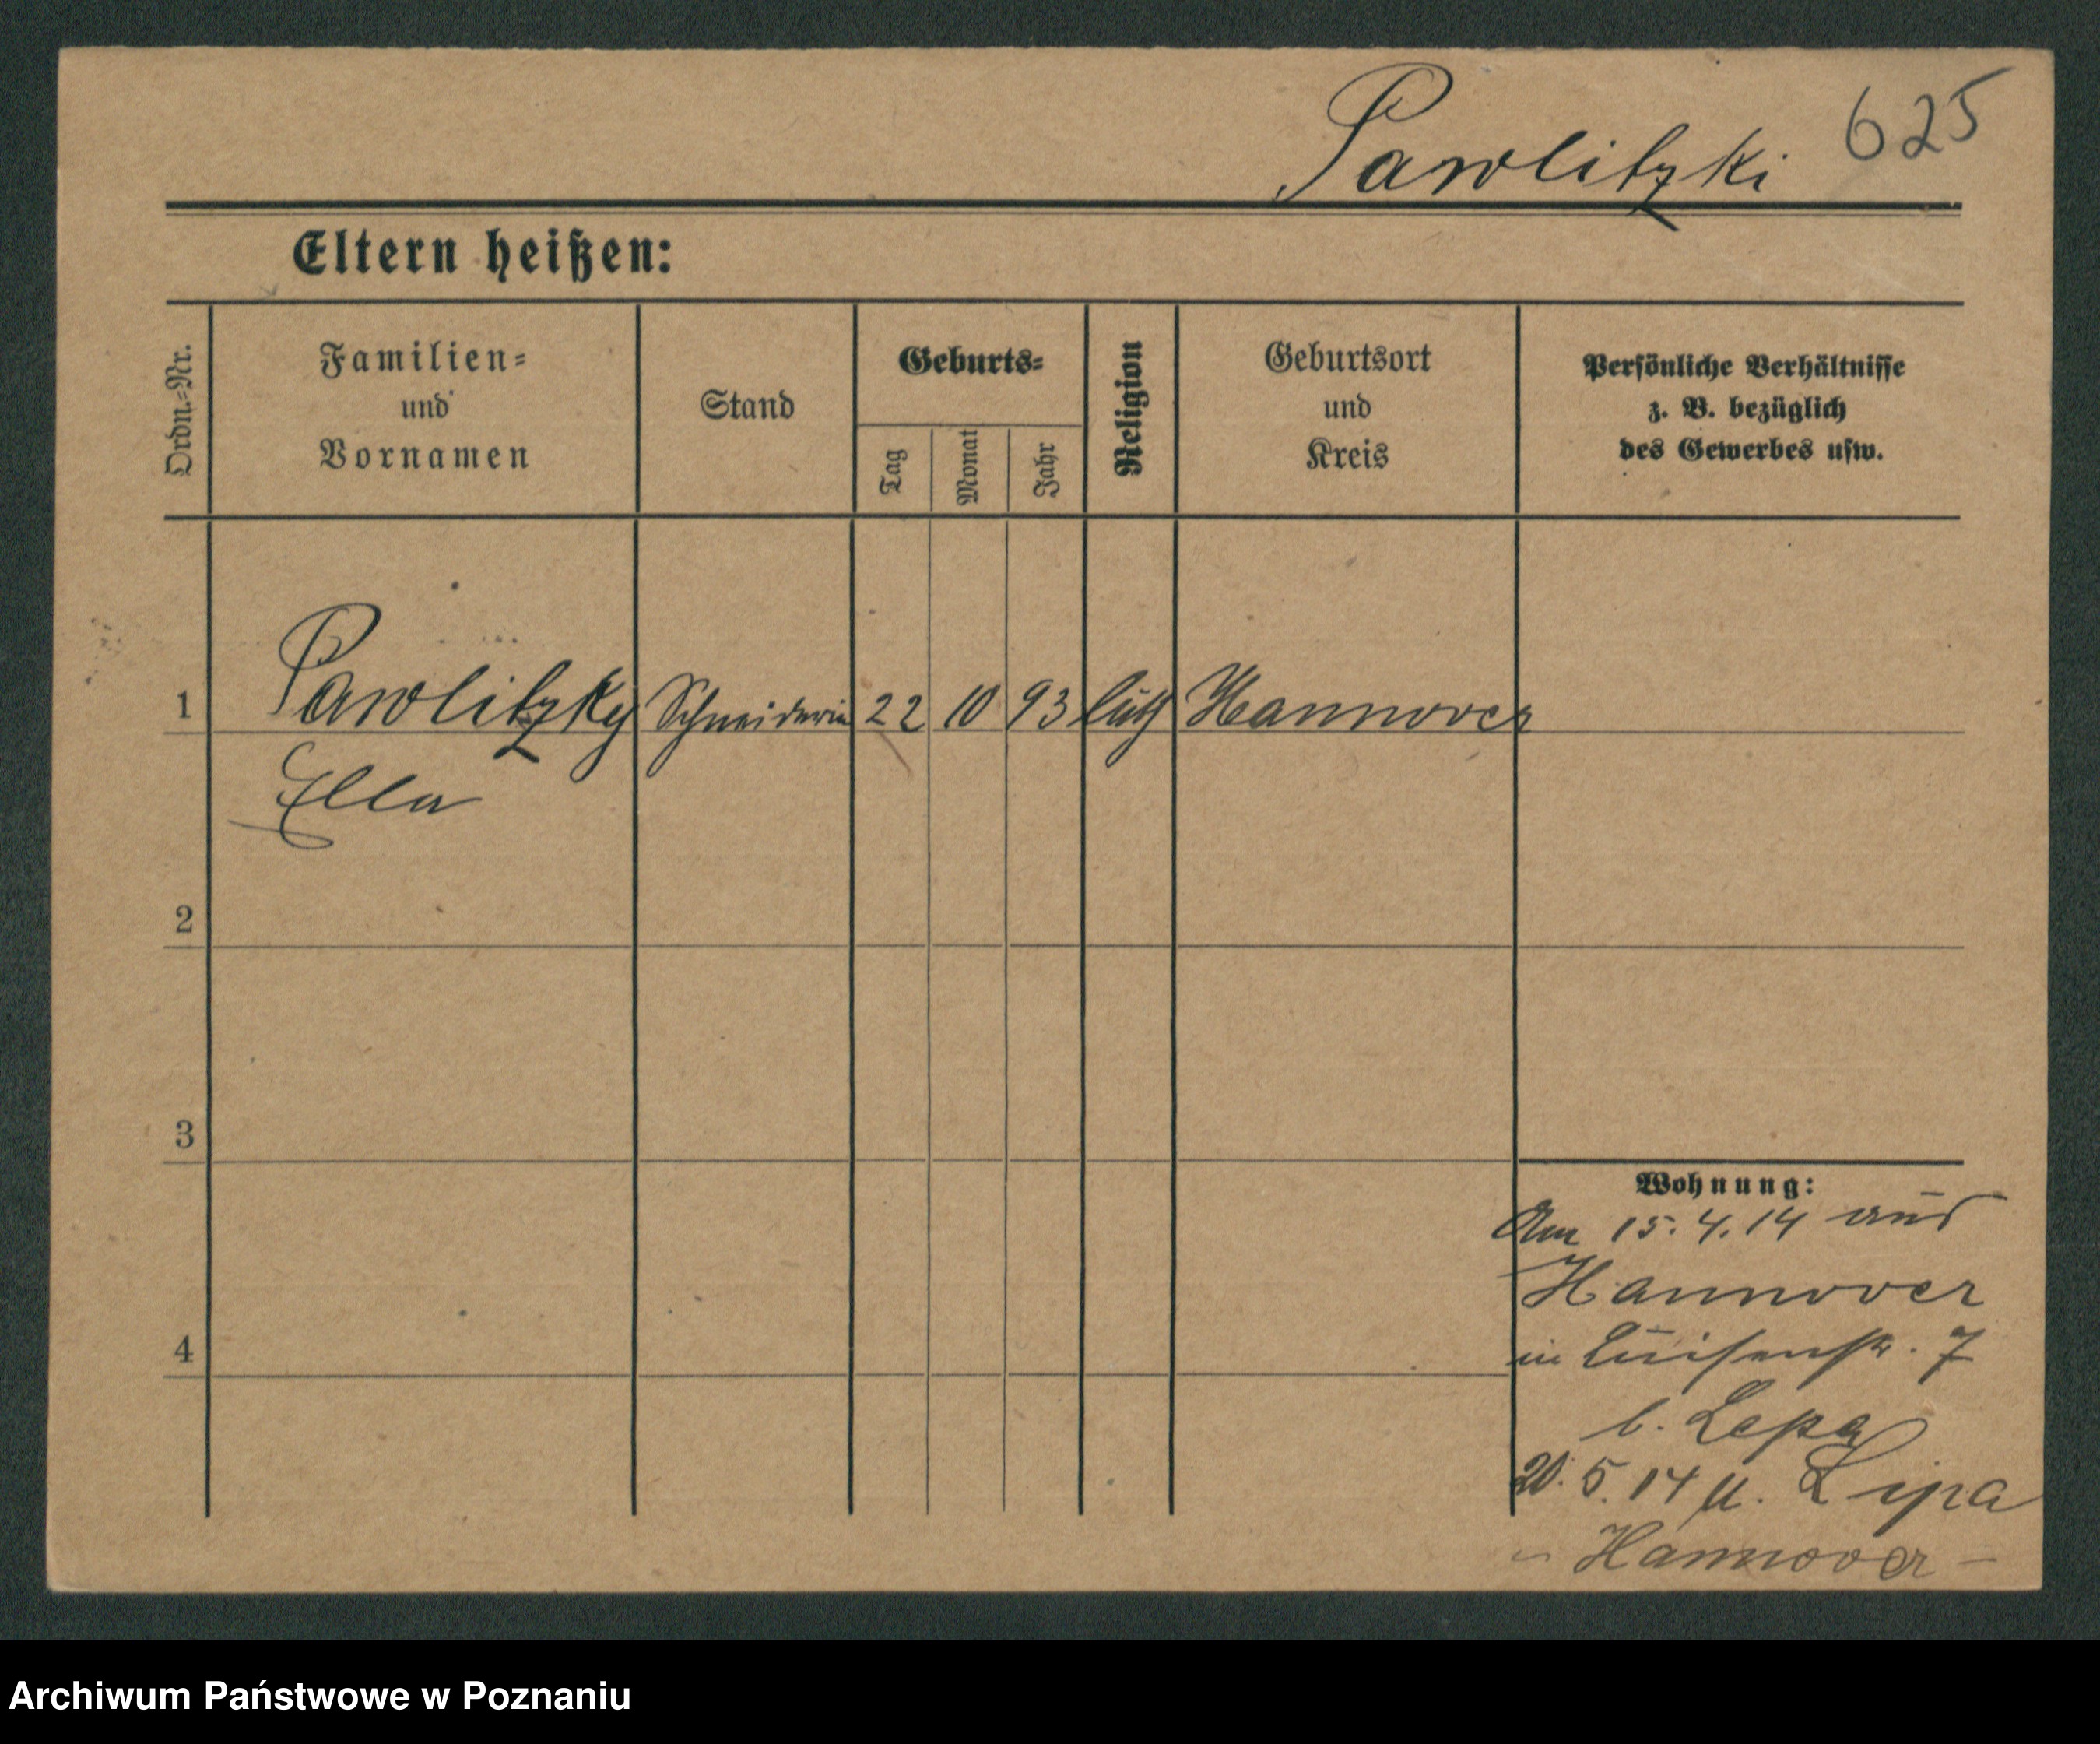 Pawlitzki 625
Eltern heißen:
Ordn.-Nr.
Familien-
und
Vornamen
Stand
Geburts-
Tag
Monat
Jahr
Religion
Geburtsort
und
Kreis
Persönliche Verhältnisse
z. B. bezüglich
des Gewerbes usw.
1 Pawlitzky Schneiderin 22 10 93 luth Hannover
Ella
2
3
4
Wohnung:
Am 15.4.14 aus
Hannover
in Luisenstr. 7
b. Lepa
20.5.14 u. Lipa
- Hannover -
Archiwum Państwowe w Poznaniu